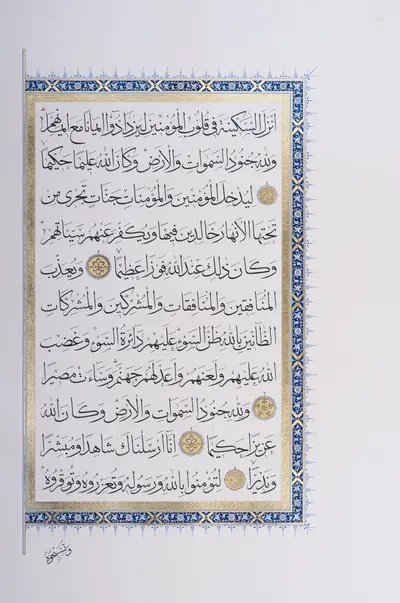 أنزل السكينة في قلوب المؤمنين ليزدادوا إيمانا مع إيمانهم
ولله جنود السموات والأرض وكان الله عليما حكيما
ليدخل المؤمنين والمؤمنات جنات تجرى من
تحتها الأنهار خالدين فيها ويكفر عنهم سيئاتهم
وكان ذلك عند الله فوزا عظيما ويعذب
المنافقين والمنافقات والمشركين والمشركات
الظانين بالله ظن السوء عليهم دائرة السوء وغضب
الله عليهم ولعنهم وأعد لهم جهنم وساءت مصيرا
ولله جنود السموات والأرض وكان الله
عزيزا حكيما إنا أرسلناك شاهدا ومبشرا
ونذيرا لتؤمنوا بالله ورسوله وتعزروه وتوقروه
وتسبحوه